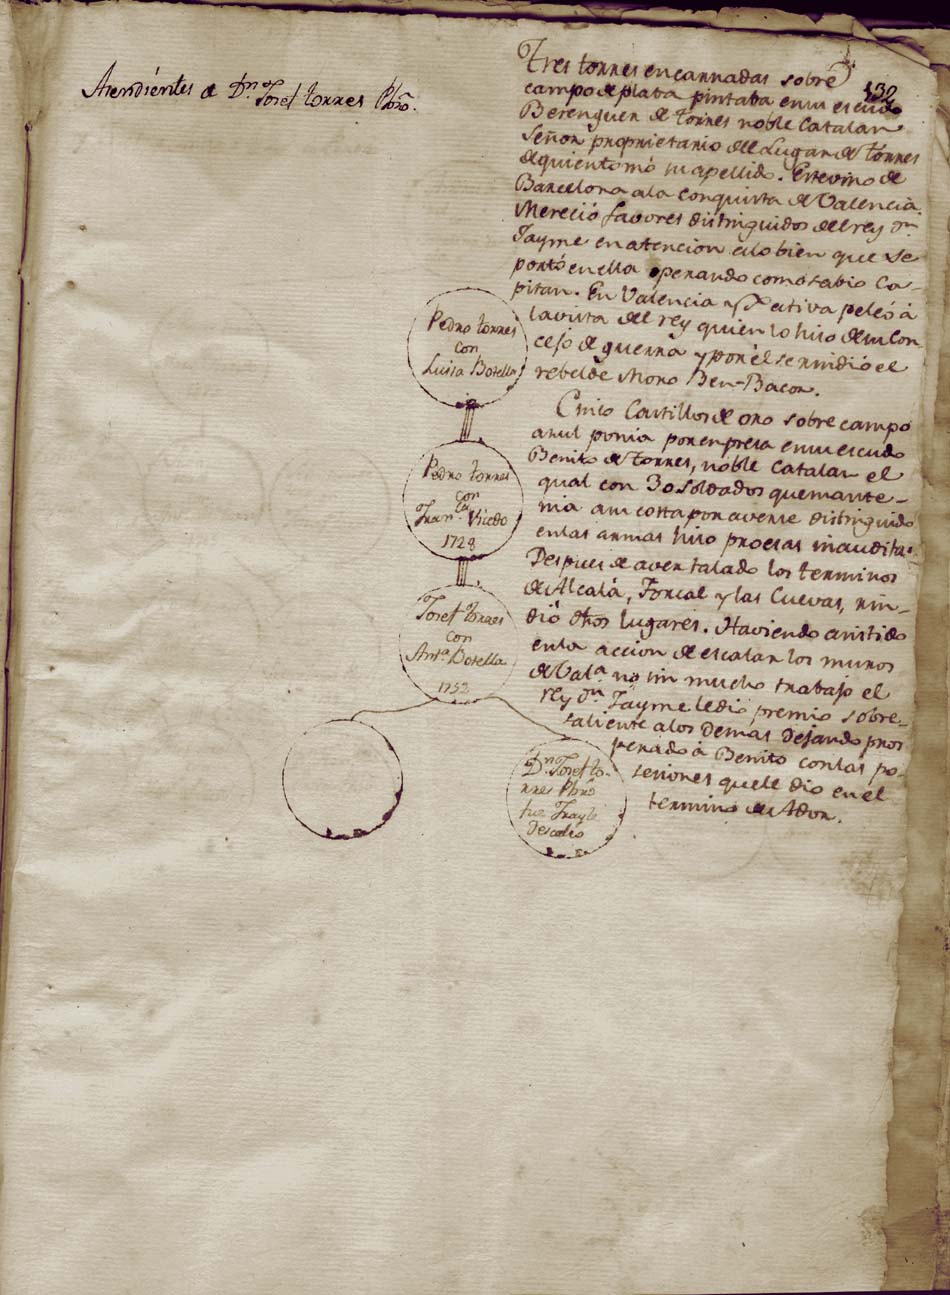 Asendientes de Dn. Josef torres Pbro.
132
Tres torres encarnadas sobre
campo de plata pintaba en su escudo
Berenguer de torres noble Catalan
Señor proprietario del Lugar de torres
de quien tomó su apellido. Este vino de
Barcelona a la conquista de Valencia.
Mereció favores distinguidos del rey Dn
Jayme en atencion a lo bien que se
portó en ella operando como sabio Ca-
pitan. En Valencia y Xativa peleó á
la vista del rey quien lo hiso de su con
cejo de guerra y por él se rindió el
rebelde Moro Ben-Bacor.
Cinco Castillos de oro sobre campo
asul ponia por enpresa en su escudo
Benito de torres, noble Catalan el
qual con 30 soldados que mante-
nia a su costa por averse distinguido
en las armas hiso proesas inauditas.
Despues de aver talado los terminos
de Alcalá, Forcal y las Cuevas, rin-
dió otros lugares. Haviendo asistido
en la accion de escalar los muros
de Vala no sin mucho trabajo el
rey Dn Jayme le dió premio sobre-
saliente a los demás dejando pros
perado á Benito con las po-
sesiones que le dio en el
termino de Ador.
Pedro torres
con
Luisa Botella
Pedro torres
con
Franca Vicedo
1728
Josef torres
con
Anta Botella
1752
Dn Josef to-
rres Pbro
fue Frayle
Descalso